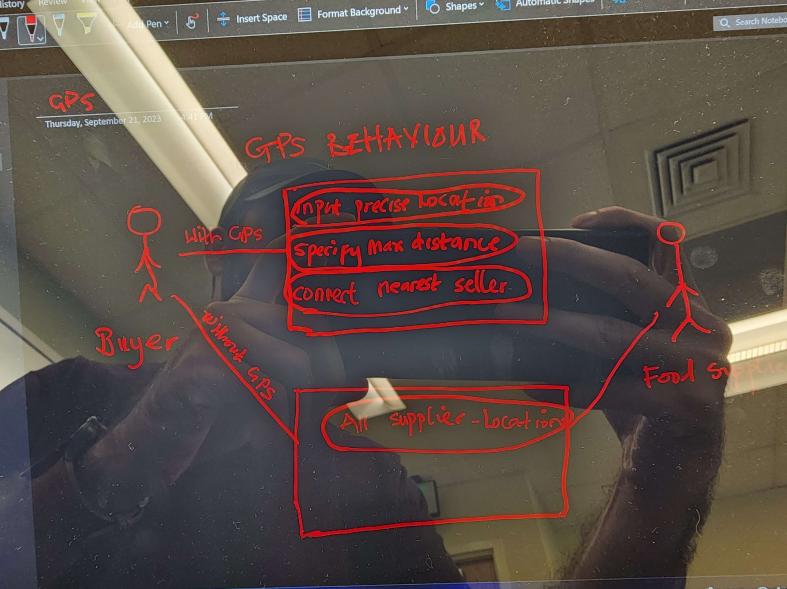 History Review
Add Pen Insert Space Format Background Shapes Automatic Shapes
Search Notebo
GPS
Thursday, September 21, 2023 4:41 PM
GPS BEHAVIOUR
input precise Location
With GPS
specify max distance
connect nearest seller
Buyer
without GPS
Food Supplier
All supplier-Location